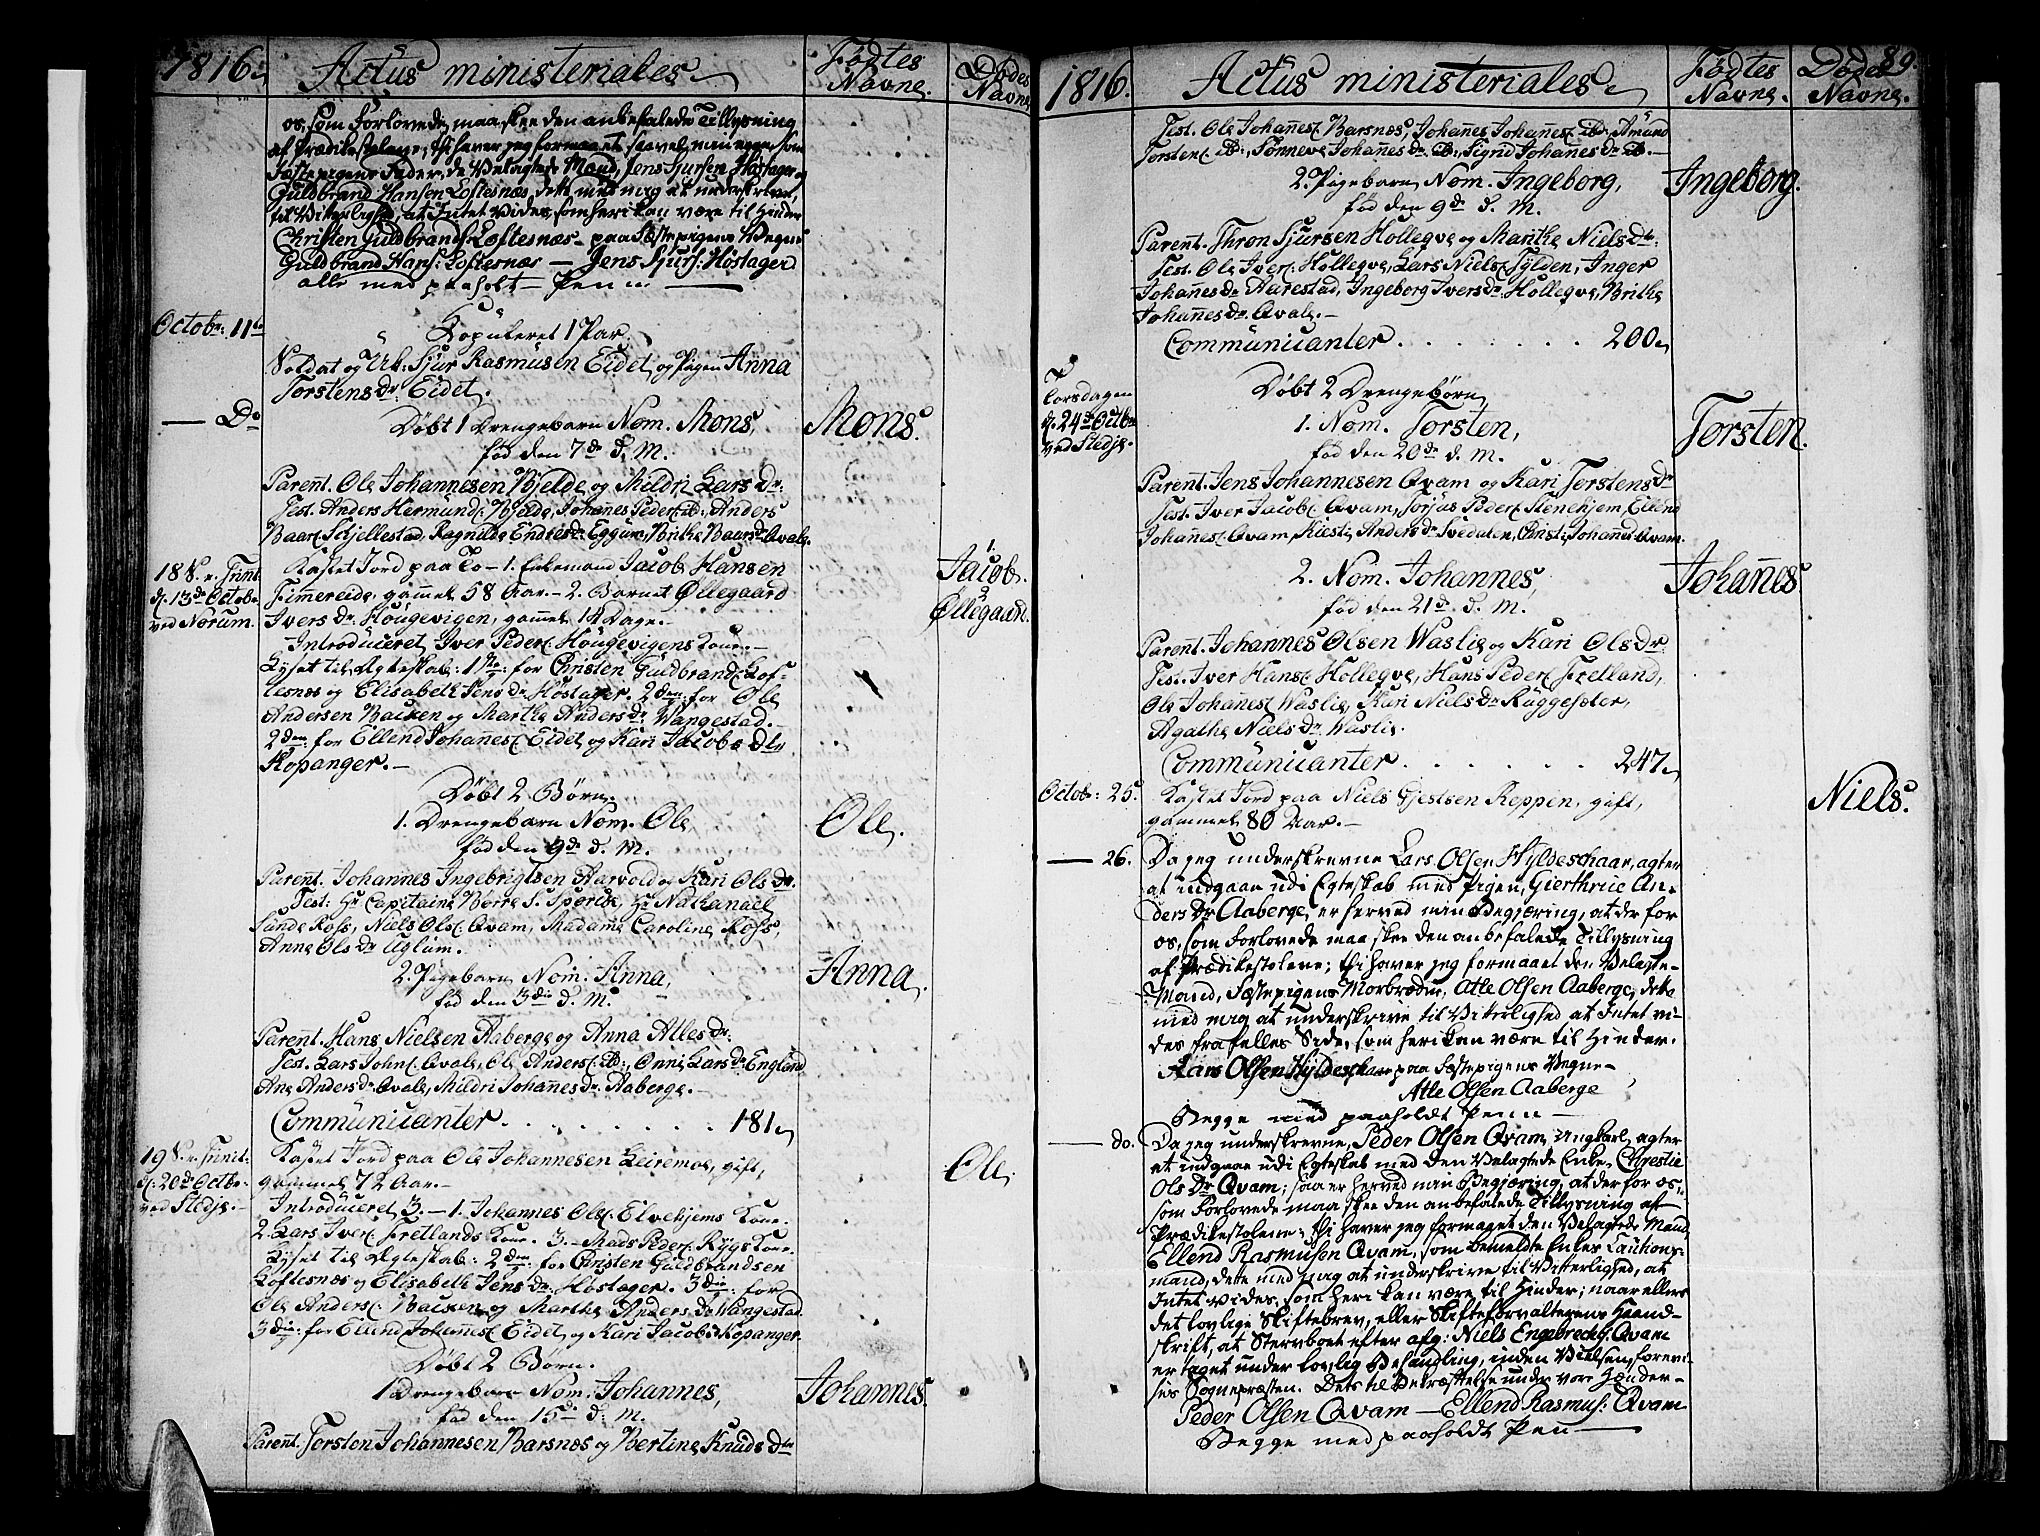 1816.
Actus ministeriales
Fødtes Navne.
Dødes Navne
os, som Forlovede, maa skee den anbefalede Tillysning
af Prædikestolene; thi haver jeg formaaet saavel min egen som
Fæstepigens Fader, de Velagte Mænd, Jens Sjursen Høstager og
Guldbrand Hansen Loftesnæs, dette med mig at underskrive,
til Vitterlighed, at Intet vides, som heri kan være til Hinder
Christen Guldbrands. Loftesnæs - paa Fæstepigens Vegne
Guldbrand Hans: Loftesnæs — Jens Sjurs: Høstager
alle med paaholt Pen
Octobr: 11te
Copuleret 1 Par.
Soldat og Uk: Sjur Rasmusen Eidet og Pigen Anna
Torstens Dr. Eidet.
— Do
Døbt 1 Drengebarn Nom. Mons,
Mons.
fød den 7de d. M.
Parent. Ole Johannesen Bjelde og Mildri Lars Dr.
Test. Anders Hermunds. Bjelde, Johannes Peders. ib:, Anders
Baars. Skjellestad, Ragnilde Endres Dr. Eggum, Brithe Baars Dr. Qvale.
18 S. e. Trinit.
d. 13de Octobr.
ved Norum.
Kastet Jord paa To - 1. Enkemand Jacob Hansen
Fimereide, gammel 58 Aar. - 2. Barnet Øllegaard
Ivers Dr. Hougevigen, gammel 14 Dage. -
1.
Jacob.
2
Øllegaard.
Introduceret Iver Peders. Hougevigens Kone. -
Lyset til Ægteskab: 1ste: for Christen Guldbrands. Lof-
tesnæs og Elisabeth Jens Dr. Høstager. 2den: for Ole
Andersen Backen og Marthe Anders Dr. Wangestad. -
2den: for Ellend Johannes. Eidet og Kari Jacobs Dtr
Kopanger. -
Døbt 2 Børn.
1. Drengebarn Nom. Ole
Ole.
fød den 9de d. M.
Parent. Johannes Ingebrigtsen Aarvold og Kari Ols Dr.
Test: Hr Capitaine Børre S. Sperbe, Hr Nathanael
Sunde Ross, Niels Ols. Qvam, Madame Caroline Ross,
Anne Ols Dr Uglum.
2. Pigebarn Nom: Anna,
Anna.
fød den 3die d. M.
Parent. Hans Nielsen Aaberge og Anna Alles Dr.
Test. Lars Johns. Qvale, Ole Anders. ib:, Onni Lars Dr England
Ane Anders Dr Qvale, Mildri Johannes Dr. Aaberge. -
Communicanter . . . . . . . 181.
19 S. e. Trinit:
d. 20de Octbr:
ved Stedje. -
Kastet Jord paa Ole Johannesen Leiremoe, gift,
gammel 72 Aar. -
Ole.
Introduceret 3. - 1. Johannes Ols. Elvehjems Kone.
2. Lars Ivers. Fretlands Kone. 3. - Mads Peders. Rygs Kone.
Lyset til Ægteskab: 2den: for Christen Guldbrandsen
Loftesnæs og Elisabeth Jens Dr. Høstager. 3die: for
Ole Anders. Backen og Marthe Anders Dr Wangestad.
3die: for Ellend Johannes. Eidet og Kari Jacobs Dr Kopanger.
Døbt 2 Børn.
1 Drengebarn Nom. Johannes,
Johannes.
fød den 15de d: M.
Parent. Torsten Johannesen Barsnæs og Bertine Knuds Dtr
1816.
Actus ministeriales
Fødtes Navne.
Dødes Navne.
89.
Test. Ole Johannes. Barsnæs, Johannes Johannes. ib:, Amund
Torstens. ib:, Tønneve Johannes Dr. ib:, Sigrid Johannes Dr ib. -
2. Pigebarn Nom. Ingeborg,
Ingeborg.
fød den 9de d. M.
Parent. Thron Sjursen Hollegve og Marithe Niels Dtr:
Test. Ole Ivers. Hollegve, Lars Niels. Sylden, Inger
Johannes Dr Aarestad, Ingeborg Ivers Dr. Hollegve, Brithe
Johannes Dr. Qvale. -
Communicanter . . . . . . . 200.
Torsdagen
d. 24de Octbr
ved Stedje.
Døbt 2 Drengebørn
1. Nom. Torsten,
Torsten.
fød den 20de d. M.
Parent. Jens Johannesen Qvam og Kari Torstens Dr
Test. Iver Jacobs. Qvam, Torjus Peders. Stenehjem, Ellend
Johannes. Qvam, Kiesti Anders Dr Svedalen, Christi Johannes Dr Qvam.
2. Nom. Johannes,
Johannes
fød den 21de d. M.
Parent. Johannes Olsen Waslie og Kari Ols Dr
Test. Iver Hans. Hollegve, Hans Peders. Fretland,
Ole Johannes. Waslie, Kari Niels Dr Ruggesæter,
Agathe Niels Dr. Waslie.
Communicanter . . . . . . 247.
Octob: 25.
Kastet Jord paa Niels Gjestsen Reppen, gift,
gammel 80 Aar. -
Niels.
— 26.
Da jeg underskrevne Lars Olsen Hyldeschaar, agter
at indgaae udi Egteskab med Pigen, Gierthrue An-
ders Dr Aaberge, er herved min Begjæring, at der for
os, som Forlovede maa skee den anbefalede Tillysning
af Prædikestolene; thi haver jeg formaaet den Velagte
Mand, Fæstepigens Morbroder, Atle Olsen Aaberge, dette
med mig at underskrive til Vitterlighed at Intet vi-
des fra felles Side, som heri kan være til Hinder.
Lars Olsen Hyldeschaar paa Fæstepigens Vegne
Atle Olsen Aaberge
Begge med paaholdt Penn -
— do.
Da jeg underskrevne, Peder Olsen Qvam, Ungkarl, agter
at indgaae udi Egteskab med den Velagtede Enke, Chrestie
Ols Dr Qvam; saa er herved min Begjæring, at der for os,
som Forlovede maa skee den anbefalede Tillysning af
Prædikestolene; thi haver jeg formaaet den Velagtede Mand
Ellend Rasmusen Qvam, som bemeldte Enkes Lauhons-
mand, dette med mig at underskrive til Vitterlighed, at
Intet vides, som heri kan være til Hinder; naar ellers
det lovlige Skiftebrev, eller Skifteforvalterens Haand-
skrift, at Stervboet efter afg: Niels Engebrechts. Qvam
er taget under lovlig Behandling, inden Vielsen, forevi-
ses Sognepræsten. Dets til Bekræftelse under vore Hænder -
Peder Olsen Qvam — Ellend Rasmus: Qvam
Begge med paaholdt Pen -